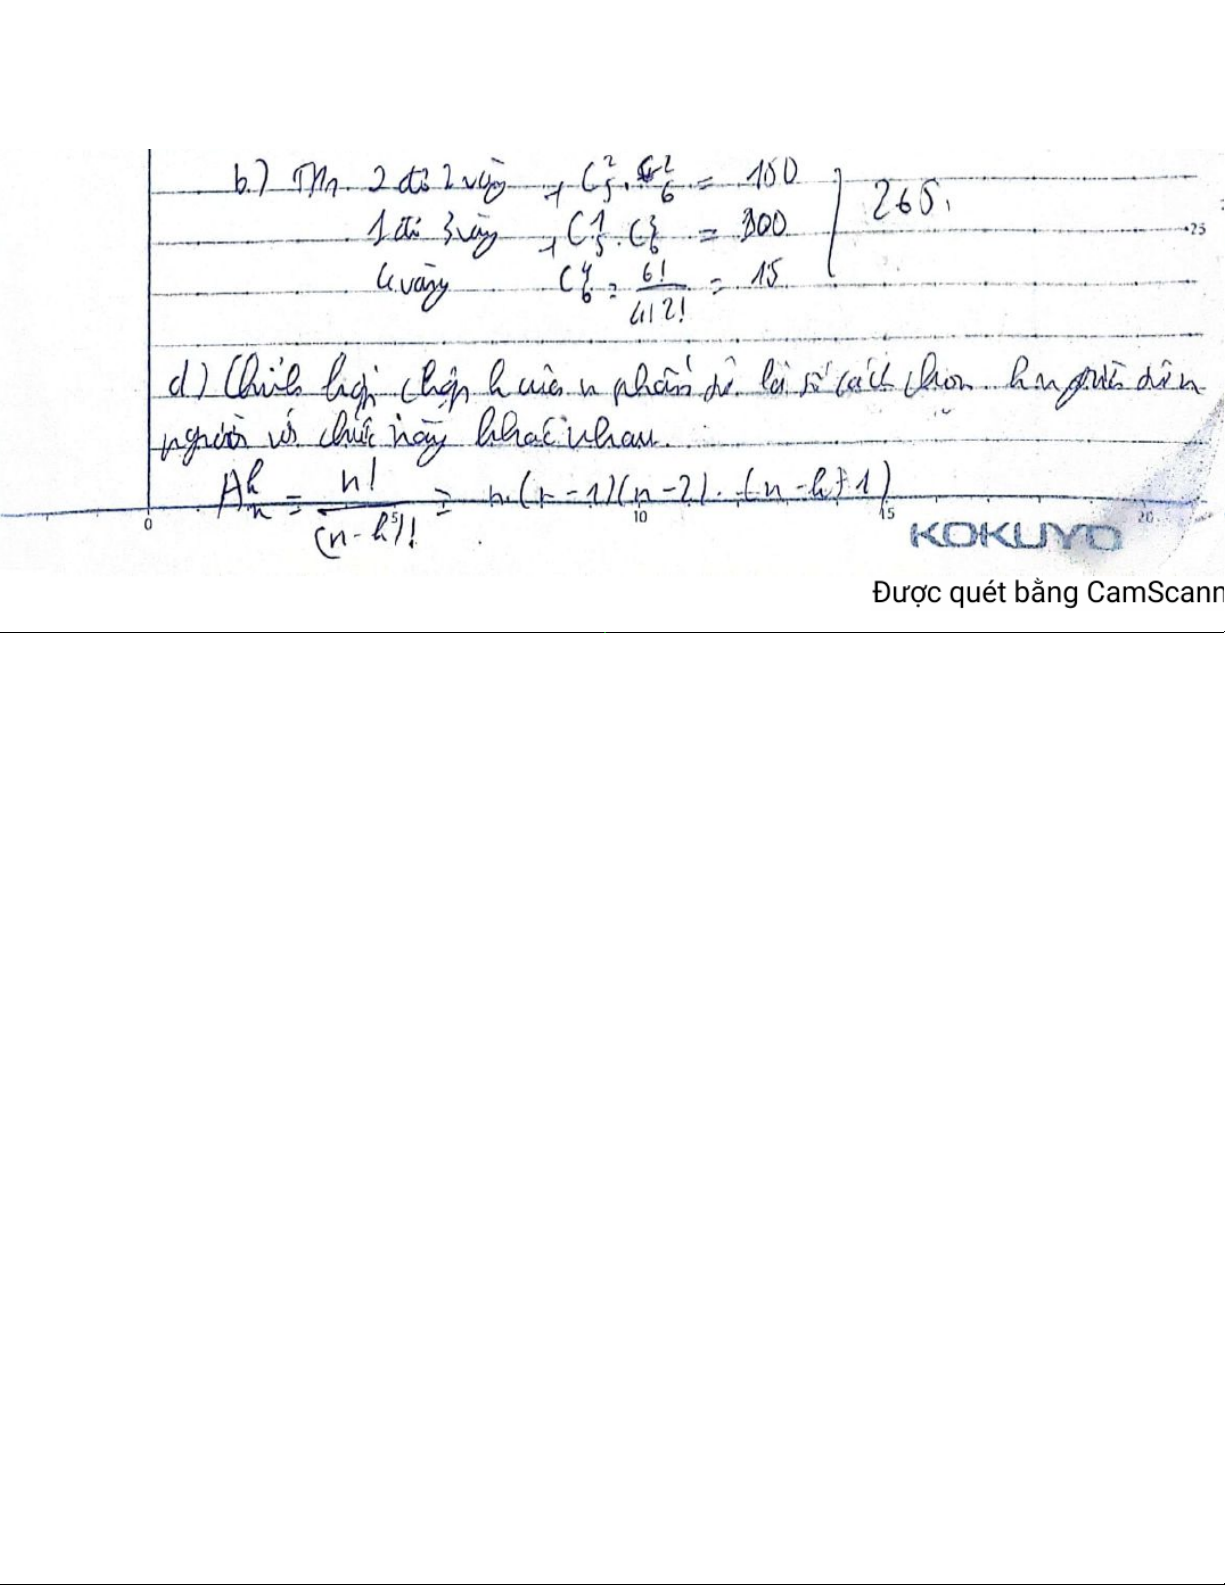 b.) Th. 2 đỏ 2 vàng → C²₅ . C²₆ = 150
1 đỏ 3 vàng → C¹₅ . C³₆ = 100
4 vàng C⁴₆ = 6!/4!2! = 15
265.
25
d) Chỉnh hợp chập k của n phần tử là số cách chọn k người
người với chức này khác nhau.
Aᵏₙ = n!/(n-k)! = n.(n-1)(n-2). (n-k+1)
0 5 10 15 20
KOKUYO
Được quét bằng CamScann